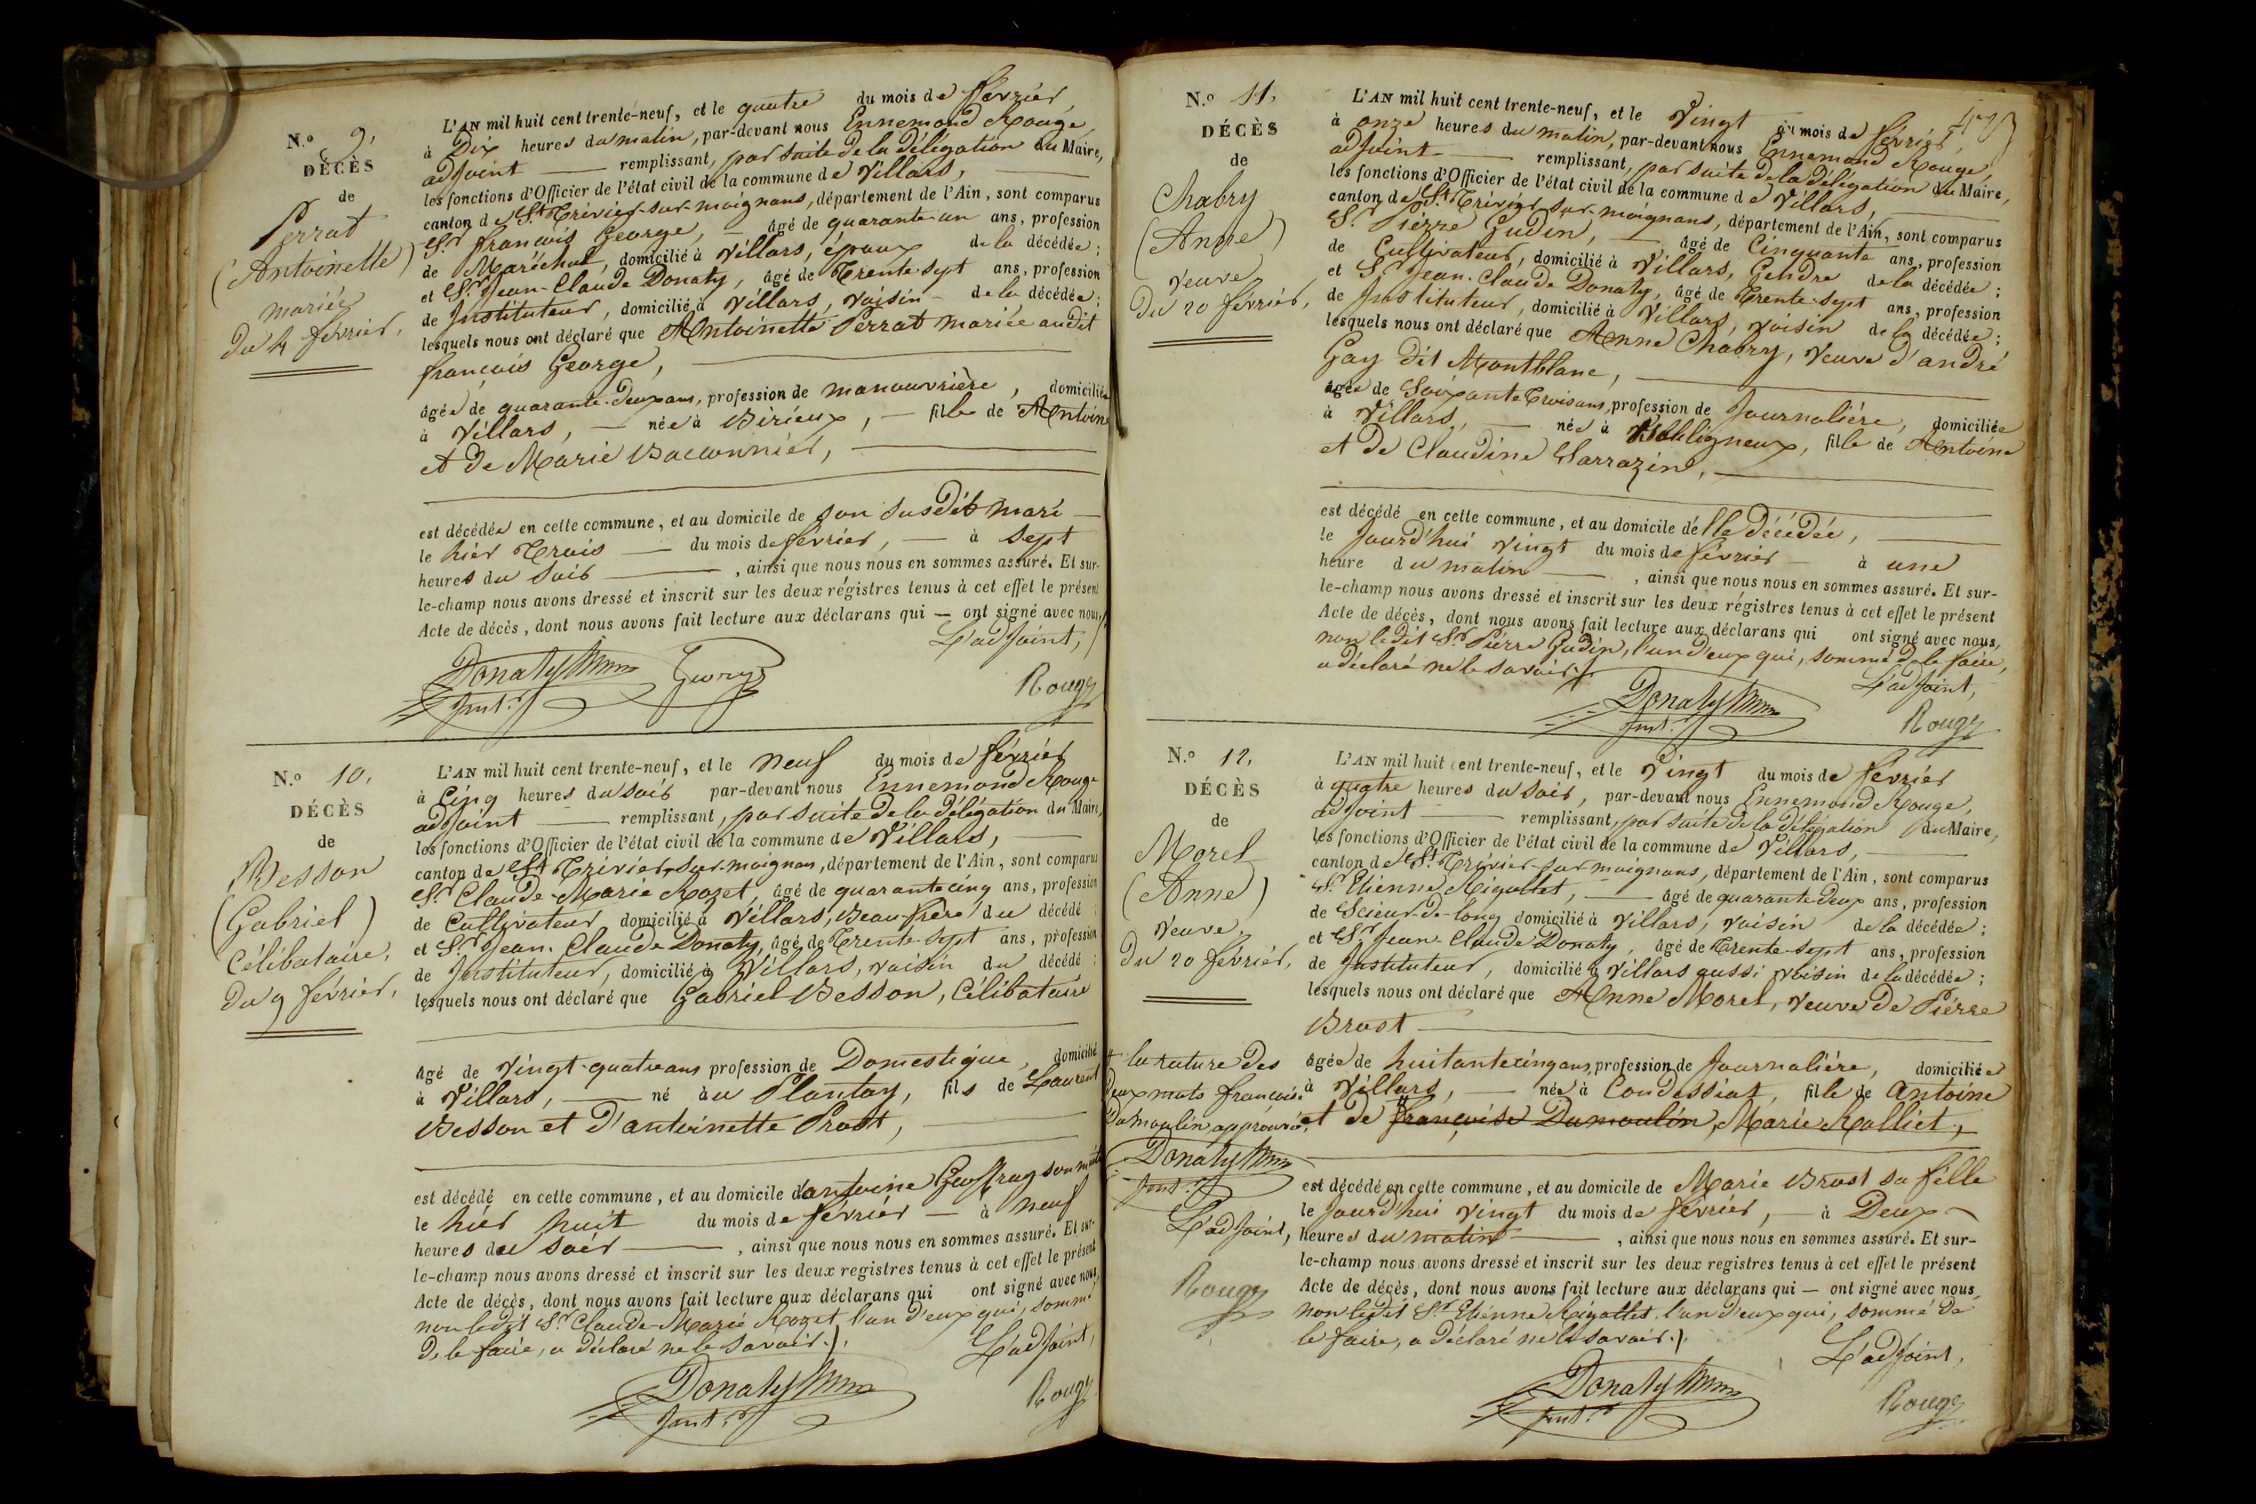 N.o 9.
DÉCÈS
de
Perrat
(Antoinette)
mariée
du 4 février.
L'AN mil huit cent trente-neuf, et le quatre du mois de février,
à Dix heures du matin, par-devant nous Ennemond Rouge,
adjoint remplissant, par suite de la délégation du Maire,
les fonctions d'Officier de l'état civil de la commune de Villars,
canton de St Trivier-sur-moignans, département de l'Ain, sont comparus
Sr. françois George, âgé de quarante-un ans, profession
de Maréchal, domicilié à Villars, époux de la décédée;
et Sr. Jean-Claude Donaty, âgé de Trente-sept ans, profession
de Instituteur, domicilié à Villars, voisin de la décédée;
lesquels nous ont déclaré que Antoinette Perrat mariée audit
françois George,
âgée de quarante-deux ans, profession de manouvrière, domiciliée
à Villars, née à Birieux, fille de Antoine
et de Marie Baconnier,
est décédée en cette commune, et au domicile de son susdit mari
le hier Trois du mois de février, à sept
heures du soir, ainsi que nous nous en sommes assuré. Et sur-
le-champ nous avons dressé et inscrit sur les deux régistres tenus à cet effet le présent
Acte de décès, dont nous avons fait lecture aux déclarans qui ont signé avec nous./.
L'adjoint,
Donaty
Inst.r
George
Rouge
N.o 10.
DÉCÈS
de
Besson
(Gabriel)
Célibataire,
du 9 février.
L'AN mil huit cent trente-neuf, et le neuf du mois de février
à Cinq heures du soir par-devant nous Ennemond Rouge
adjoint remplissant, par suite de la délégation du Maire,
les fonctions d'Officier de l'état civil de la commune de Villars,
canton de St Trivier-sur-moignans, département de l'Ain, sont comparus
Sr Claude-Marie Rozet, âgé de quarante cinq ans, profession
de Cultivateur domicilié à Villars, Beau-frère du décédé
et Sr. Jean-Claude Donaty, âgé de Trente-sept ans, profession
de Instituteur, domicilié à Villars, voisin du décédé;
lesquels nous ont déclaré que Gabriel Besson, Célibataire
âgé de vingt-quatre ans profession de Domestique, domicilié
à Villars, né au Plantay, fils de Laurent
Besson et d'antoinette Prost,
est décédé en cette commune, et au domicile d'antoine Geoffray son maître
le hier huit du mois de février à neuf
heures du soir, ainsi que nous nous en sommes assuré. Et sur-
le-champ nous avons dressé et inscrit sur les deux registres tenus à cet effet le présent
Acte de décès, dont nous avons fait lecture aux déclarans qui ont signé avec nous,
non ledit Sr. Claude-Marie Rozet, l'un d'eux qui, sommé
de le faire, a déclaré ne le savoir./.
L'adjoint,
Donaty
Inst.r
Rouge
N.o 11.
DÉCÈS
de
Chabry
(Anne)
veuve
du 20 février,
L'AN mil huit cent trente-neuf, et le Vingt du mois de février,
à onze heures du matin, par-devant nous Ennemond Rouge,
adjoint remplissant, par suite de la délégation du Maire,
les fonctions d'Officier de l'état civil de la commune de Villars,
canton de St Trivier-sur-moignans, département de l'Ain, sont comparus
Sr. Pierre Gudin, âgé de Cinquante ans, profession
de Cultivateur, domicilié à Villars, Gendre de la décédée;
et Sr Jean-Claude Donaty, âgé de Trente-sept ans, profession
de Instituteur, domicilié à Villars, voisin de la décédée;
lesquels nous ont déclaré que Anne Chabry, veuve d'andré
Gay dit Montblanc,
âgée de Soixante Trois ans, profession de Journalière, domiciliée
à Villars, née à Bouligneux, fille de Antoine
et de Claudine Sarrazin,
est décédé en cette commune, et au domicile de lle décédée,
le jourd'hui vingt du mois de février à une
heure du matin, ainsi que nous nous en sommes assuré. Et sur-
le-champ nous avons dressé et inscrit sur les deux régistres tenus à cet effet le présent
Acte de décès, dont nous avons fait lecture aux déclarans qui ont signé avec nous,
non ledit Sr. Pierre Gudin, l'un d'eux qui, sommé de le faire,
a déclaré ne le savoir./.
L'adjoint,
Donaty
Inst.r
Rouge
N.o 12.
DÉCÈS
de
Morel
(Anne)
veuve
du 20 février,
L'AN mil huit cent trente-neuf, et le Vingt du mois de février
à quatre heures du soir, par-devant nous Ennemond Rouge,
adjoint remplissant, par suite de la délégation du Maire,
les fonctions d'Officier de l'état civil de la commune de Villars,
canton de St. Trivier-sur-moignans, département de l'Ain, sont comparus
Sr. Etienne Rigottet, âgé de quarante deux ans, profession
de Scieur-de-long domicilié à Villars, voisin de la décédée;
et Sr. Jean-Claude Donaty, âgé de Trente-sept ans, profession
de Instituteur, domicilié à Villars aussi voisin de la décédée;
lesquels nous ont déclaré que Anne Morel, veuve de Pierre
Brost
âgée de huitante cinq ans, profession de Journalière, domiciliée
à Villars, née à Condessiat, fille de antoine
et de françoise Dumoulin, Marie Ralliet,
la rature des
deux mots françoise
Dumoulin approuvée.
Donaty
Inst.r
L'adjoint,
Rouge
est décédé en cette commune, et au domicile de Marie Brost sa fille
le jourd'hui vingt du mois de février, à Deux
heures du matin, ainsi que nous nous en sommes assuré. Et sur-
le-champ nous avons dressé et inscrit sur les deux registres tenus à cet effet le présent
Acte de décès, dont nous avons fait lecture aux déclarans qui ont signé avec nous,
non ledit Sr. Etienne Rigottet, l'un d'eux qui, sommé de
le faire, a déclaré ne le savoir./.
L'adjoint,
Donaty
Inst.r
Rouge